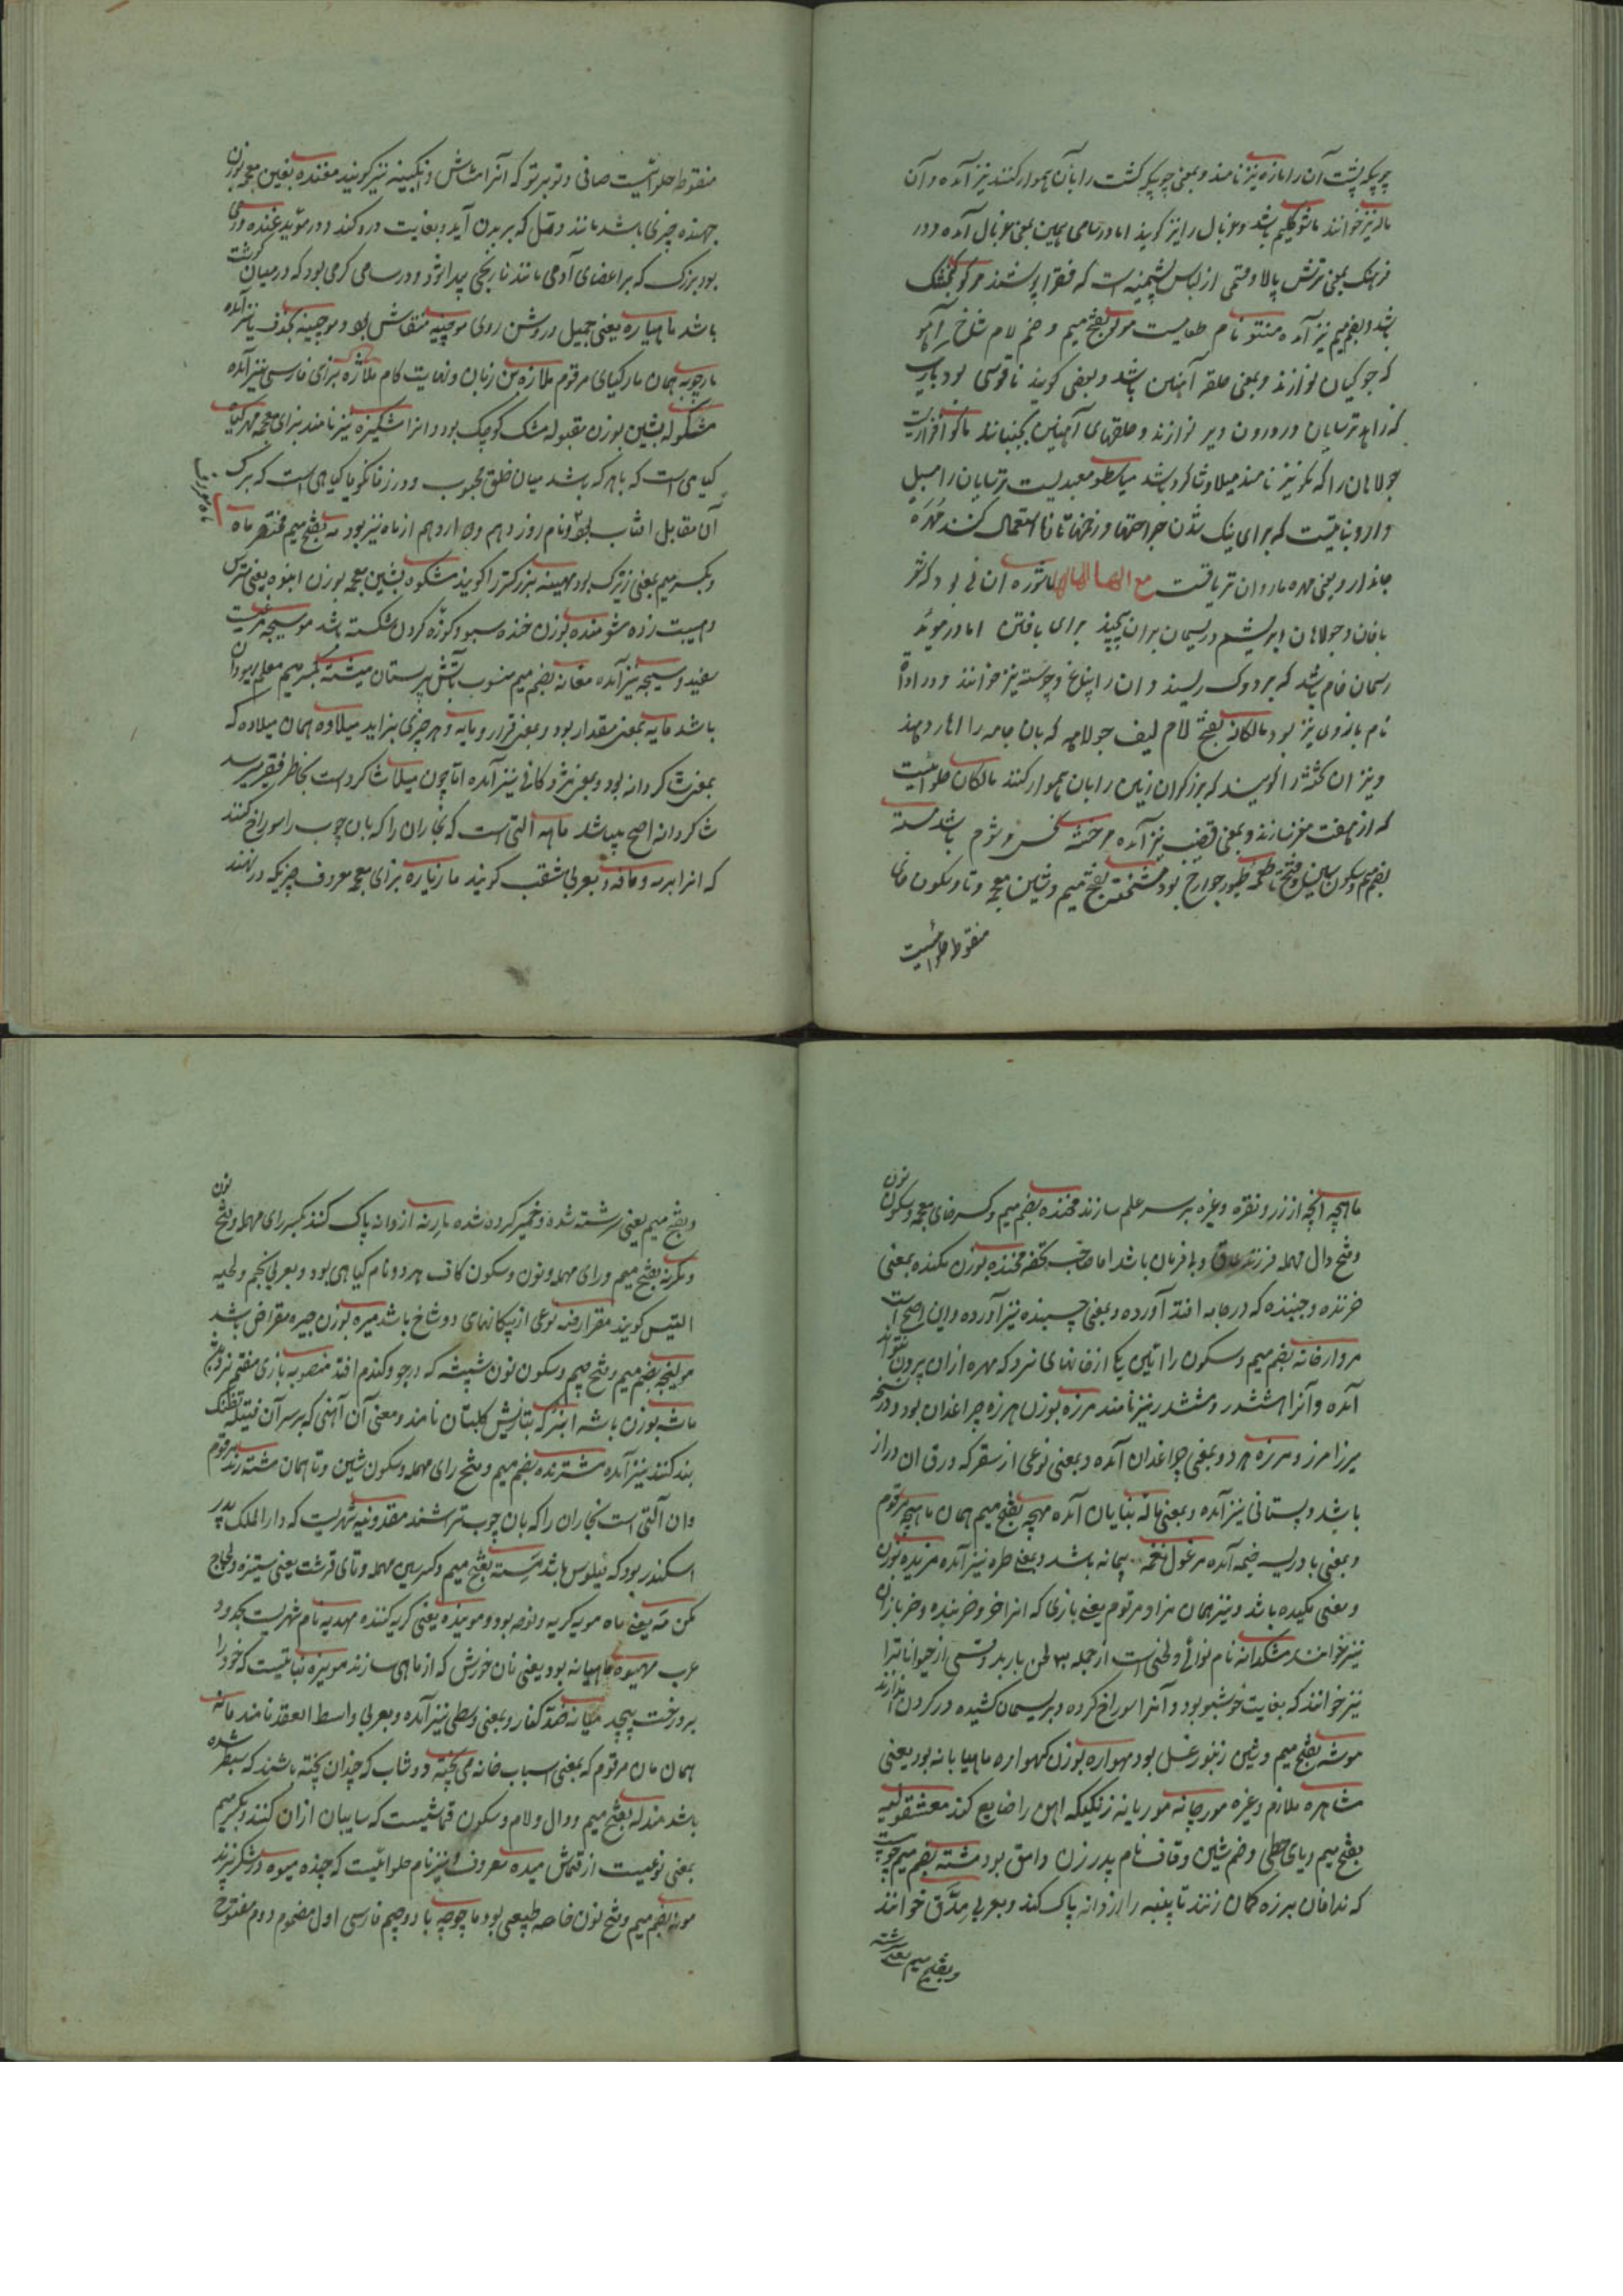 چوبیکه پشت آن را مازه نیز نامند و بمعنی چوبیکه کشت را بآن هموار کنند نیز آمده و آن
ماله نیز خوانند باشد و غربال را نیز گویند اما در سامی همین بمعنی غربال آمده و در
فرهنگ بمعنی ترش پالا و قسمی از لباس پشمینه است که فقرا پوشند مرکو کنجشک
باشد و بضم میم نیز آمده منتو نام طعامیست مولو بفتح میم و ضم لام شاخ آهو
که جوکیان نوازند و بمعنی حلقه آهنین باشد و بعضی گویند ناقوسی بود باریک
که زاهد ترسایان در درون دیر نوازند و حلقهای آهنین بجنبانند ماکو افزاریست
جولاهان را که مکو نیز نامند میلاو شاگرد باشد میاسطو معبدیست ترسایان را مبیل
دارو نباتیست که برای نیک شدن جراحتها و زخمها استعمال کنند مهره
جاندار و بمعنی مهره مار و آن تریاقست مع الهاء ماشوره آن نی بود که
بافان و جولاهان ابریشم و ریسمان بران پیچند برای بافتن اما در موید
ریسمان خام باشد که بر دوک ریسند و آن را نیز خوانند و در ادات
نام بازوی نیز بود مالکانه بفتح لام لیف جولاهه که بان جامه را اهار دهند
و نیز آن تخته را گویند که برزگران زمین را بان هموار کنند مالکان حلوائیست
که از هفت مغز سازند و بمعنی نیز آمده مرخشه نحس و شوم باشد مسته
بضم میم و سکون سین و فتح تا طعمه طیور جوارح بود مشخته بفتح میم و شین معجمه و تا و سکون خای
منقوط حلوائیست
منقوطه حلوائیست صافی و توبرتو که آنرا مشاش و انگبینه نیز گویند مغنده بغین معجمه بوزن
جهنده چیزی باشد مانند دمل که بر بدن آید و بغایت درد کند و در موید غنده ورمی
بود بزرگ که بر اعضای آدمی مانند نارنجی پیدا شود و در سامی گرهی بود که در میان گوشت
باشد ماهپاره یعنی جمیل و روشن روی موچینه منقاش بود و موچینه بحذف یا نیز آمده
مارچوبه همان مارگیای مرقوم ملازه بن زبان و نهایت کام ملاژه بزای فارسی نیز آمده
مشکوله بشین بوزن مقبوله مشک کوچک بود و انرا مشکیزه نیز نامند بزای معجمه مهرگیاه
گیاهی است که باهر که باشد میان خلق محبوب و در زفانگویا گیاهی است که برگ
آن مقابل افتاب بود و نام روز دهم و دوازدهم از ماه نیز بود مه بفتح میم مختصر ماه
ماه معروف
و بکسر میم بمعنی بزرگ بود مهینه بزرگتر را گویند مشکوه بشین معجمه بوزن انبوه یعنی مترس
و هیبت زده مشو منده بوزن خنده سبو و کوزه گردن شکسته باشد موسیجه مرغیست
سفید و موسیچه نیز آمده مغانه بضم میم منسوب بآتش پرستان میشنه بکسر میم معلم یهودان
باشد مایه بمعنی مقدار بود و بمعنی قرار و مایه و هر چیزی بزاید میلاوه همان میلاده که
بمعنی شاگردانه بود و بمعنی مژدگانی نیز آمده اما چون میلا شاگرد است بخاطر فقیر میرسد
شاگردانه اصح بباشد ماهه التی است که نجاران را که بان چوب را سوراخ کنند
که انرا برمه و مافه و بعربی مثقب گویند مازیاره بزای معجمه معروف چیزیکه در نهند
ماهچه آنچه از زر و نقره و غیره بر سر علم سازند مخنده بضم میم و کسر خای معجمه و سکون نون
و فتح دال مهمله فرزند عاق و بافرمان باشد اما صاحب تحفه مخنده بوزن مکنده بمعنی
خزنده و جنبنده که در جامه افتد آورده و بمعنی چسبنده نیز آورده و این اصح است
مردارخانه بضم میم و سکون را این یکی از خانهای نرد که مهره از ان بیرون نتواند
آمده و آنرا هششدر و مششدر نیز نامند مرزه بوزن هرزه چراغدان بود و در نسخه
میرزا مرز و مرزه هر دو بمعنی چراغدان آمده و بمعنی نوعی از سقر که ورق ان دراز
باشد و بستانی نیز آمده و بمعنی ماله بنایان آمده مهچه بفتح میم همان ماهچه مرقوم
و بمعنی بادریسه خیمه آمده مرغوله نغمه پیمانه باشد و بمعنی طره نیز آمده مزیده بوزن
و معنی مکیده باشد و نیز همان مزاد مرقوم یعنی بازیی که انرا خر و خربنده و خربازان
نیز خوانند مشکدانه نام نوائی و لحنی است از جمله ۳۰ لحن باربد و قسمی از حیوانات را
نیز خوانند که بغایت خوشبو بود و آنرا سوراخ کرده و بریسمان کشیده در گردن اندازند
موشه بفتح میم و شین زنبور عسل بود مهواره بوزن گهواره ماهیابانه بود یعنی
مشاهره ملازم و غیره مورچانه موریانه زنگیکه اهن را ضایع کند معشقولیه
بفتح میم و یای حطی و ضم شین و قاف نام پدر زن وامق بود مشته بضم میم چوبیست
که ندافان بر زه کمان زنند تا پنبه را از دانه پاک کند و بعربی مدق خوانند
و بفتح میم یعنی سرشته
و بفتح میم یعنی سرشته شده و خمیر کرده شده مارنه از دانه پاک کند بکسر رای مهمله و فتح نون
و مکرنه بفتح میم و رای مهمله و نون و سکون کاف هر دو نام گیاهی بود و بعربی نجم و لحیه
التیس گویند مقراضه نوعی از پیکانهای دو شاخ باشد میره بوزن جیره مقراض باشد
مولیجه بضم میم و فتح جیم و سکون نون شپشه که در جو و گندم افتد منصوبه بازی هفتم نرد
ماشه بوزن باشه انبر که بتازیش کلبتان نامند و معنی آن آهنی که بر سر آن فتیله تفنگ
بند کنند نیز آمده مشترنده بضم میم و فتح رای مهمله و سکون شین و تا همان مشته رند مرقوم
و ان آلتی است نجاران را که بان چوب تراشند مقدونیه شهریست که دارالملک پدر
اسکندر بود که فیلوس باشد مسته بفتح میم و کسر سین مهمله و تای قرشت یعنی ستیزه و لجاج
مکن مه یعنی ماه مویه گریه و نوحه بود و مومیده یعنی گریه کننده مهدیه نام شهریست بحدود
عرب مهیوه ماهیانه بود یعنی نان خورش که از ماهی سازند مویزه نباتیست که خود را
بر درخت پیچد میانه ضد کنار و بمعنی وسطی نیز آمده و بعربی واسط العقد نامند مانه
همان مان مرقوم که بمعنی اسباب خانه می پخته دوشاب که چندان پخته باشند که سطبر شده
باشد مندله بفتح میم و دال و لام و سکون قماشیست که سایبان از ان کنند و بکسر میم
بمعنی نوعیست از قماش میده معروف و نیز نام حلوائیست که چنده میوه در شکر نیزند
مونه بضم میم و فتح نون خاصه طبیعی بود ماچوچه با دو جیم فارسی اول مضموم و دوم مفتوح